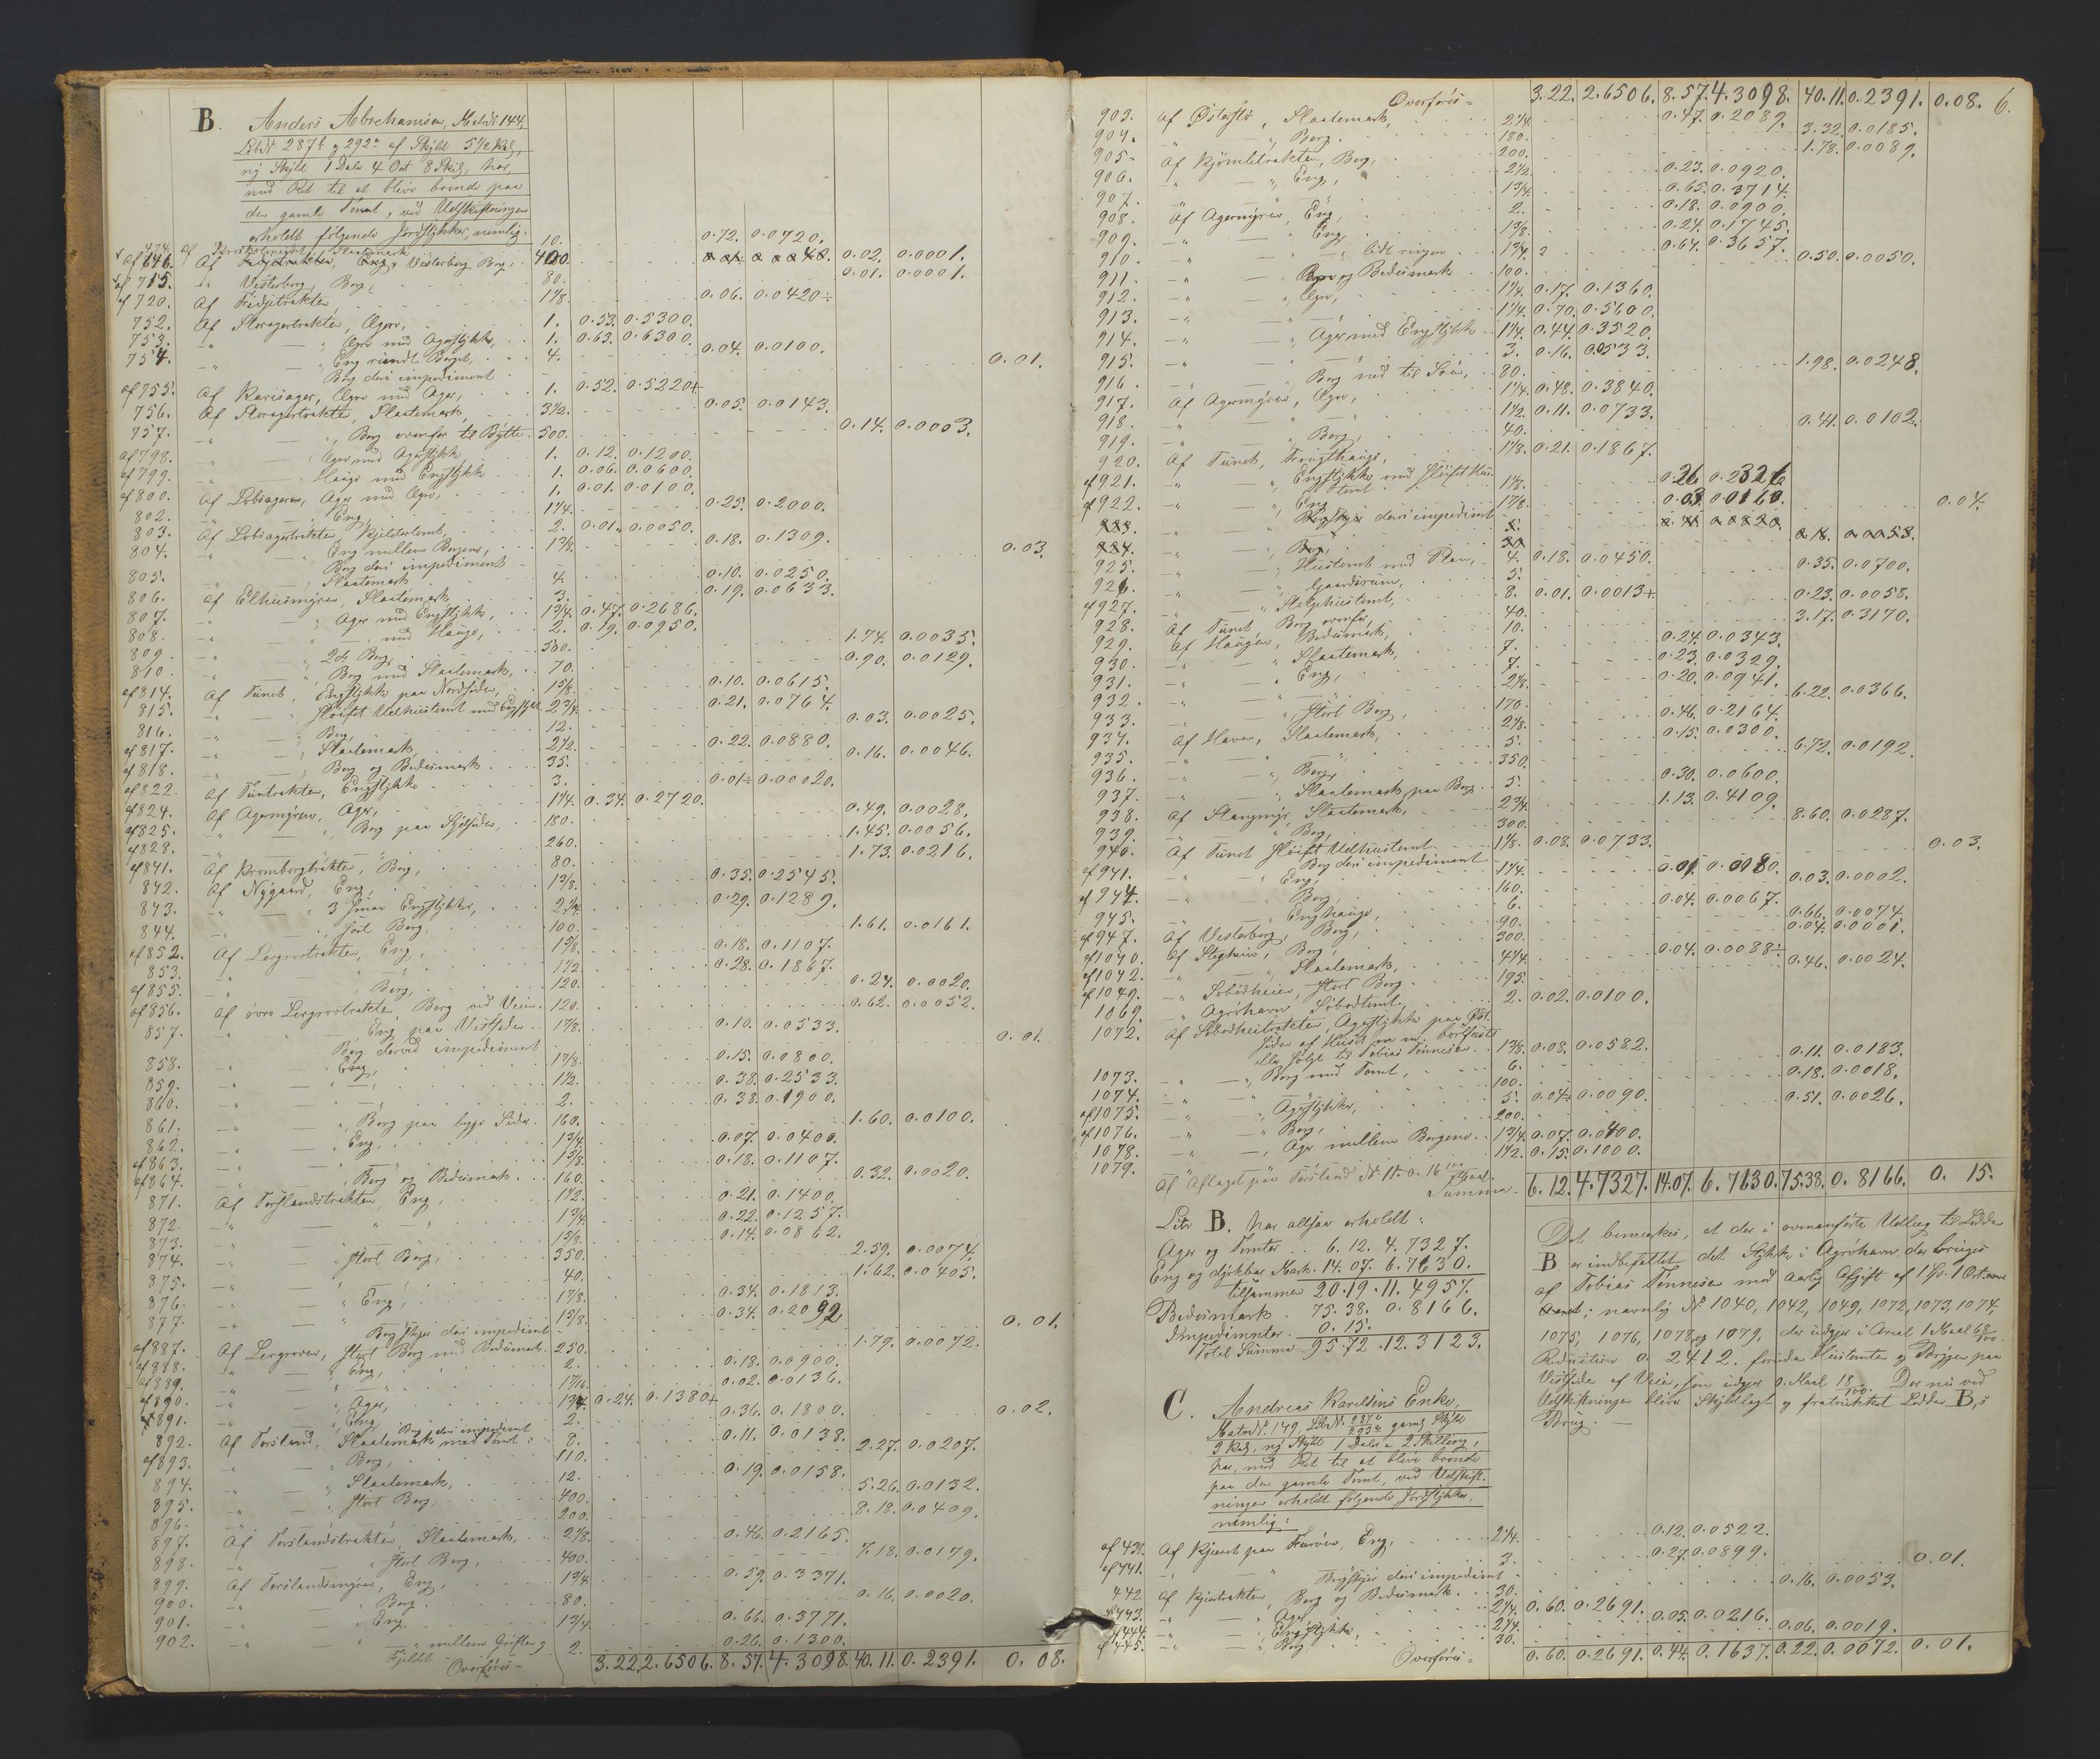 B. Anders Abrahamsen, Matr№ 144,
Løb№ 287b og 292a af Skyld 5½ Kal,
ny Skyld 1 Daler 4 Ort 8 Skil, har,
med Ret til at blive boende paa
den gamle Tomt, ved Udskiftningen
erholdt følgende Jordstykker, nemlig:
474. 10. 0.72. 0.0720.
af 646. Vesterberg Berg, 400. 0.02. 0.0001.
af 715. Vesterberg, Berg, 80. 0.01. 0.0001.
af 720. Af 1⅞. 0.06. 0.0420
752. Af Storagertrakten, Agro, 1. 0.53. 0.5300.
753. " — " Agro med Agerstykke, 1. 0.63. 0.6300.
754. " — " Eng rundt Berget, 4. 0.04. 0.0100.
Berg deri impediment 0.01.
af 755. Af Karisager, Agro med Ager, 1. 0.52. 0.5220
756. Af Storagertrakten, Slaatemark, 3½. 0.05. 0.0143.
757. " — " Berg ovenfor til Bytte. 500. 0.14. 0.0003.
af 798. " — " Agro med Agerstykke, 1. 0.12. 0.1200.
af 799. " — " Hauge med Engstykke 1. 0.06. 0.0600.
af 800. Af Lobsageren, Ager med Agro, 1. 0.01. 0.0100.
802. " — " Eng, 1¼. 0.25. 0.2000.
803. Af Lobsagertrakten, Kjeldertomt, 2. 0.01. 0.0050.
804. " — " Eng mellem Bergene, 1⅜. 0.18. 0.1309.
Berg deri impediment 0.03.
805. " — " Slaatemark 4. 0.10. 0.0250.
806. Af Elhusmyren, Slaatemark 3. 0.19. 0.0633.
807. " — " Ager med Engstykke, 1¾. 0.47. 0.2686.
808. " — " med Hauge, 2. 0.19. 0.0950.
809. " — " 2de Berg, 500. 1.74. 0.0035.
810. " — " Berg med Slaatemark, 70. 0.90. 0.0129.
af 814. Af Tunet, Engstykke paa Nordsiden, 1⅝. 0.10. 0.0615.
815. " — " Sløift Udhustomt med Engstykke 2¾. 0.21. 0.0764.
816. " — " Berg, 12. 0.03. 0.0025.
af 817. " — " Slaatemark, 2½. 0.22. 0.0880.
af 818. " — " Berg og Bedesmark 35. 0.16. 0.0046.
af 822. Af Tuntrakten, Engstykke 3. 0.01. 0.00020.
af 824. Af Agermyren, Ager, 1¼. 0.34. 0.2720.
af 825. " — " Berg paa Sjøsiden, 180. 0.49. 0.0028.
af 828. " — " 260. 1.45. 0.0056.
af 841. Af Krombergtrakten, Berg, 80. 1.73. 0.0216.
842. Af Nygaard, Eng, 1⅜. 0.35. 0.2545.
843. " — " 3 smaa Engstykker, 2¼. 0.29. 0.1289.
844. " — " stort Berg, 100. 1.61. 0.0161.
af 852. Af Lergrovtrakten, Eng, 1⅝. 0.18. 0.1107.
853. " — " 1½. 0.28. 0.1867.
af 855. " — " Berg, 120. 0.24. 0.0020.
af 856. Af øvre Lergrovtrakten, Berg ved Veien. 120. 0.62. 0.0052.
857. " — " Eng paa Vestsiden 1⅞. 0.10. 0.0533.
Berg derved impediment 0.01.
858. " — " Eng, 1⅞. 0.15. 0.0800.
859. " — " 1½. 0.38. 0.2533.
860. " — " 2. 0.38. 0.1900.
861. " — " Berg paa begge Sider. 160. 1.60. 0.0100.
862. " — " Eng, 1¾. 0.07. 0.0400.
af 863. " — " 1⅝. 0.18. 0.1107.
af 864. " — " Berg og Bedesmark 160. 0.32. 0.0020.
871. Af Torslandstrakten, Eng, 1½. 0.21. 0.1400.
872. " — " 1¾. 0.22. 0.1257.
873. " — " 1⅝. 0.14. 0.0862.
874. " — " stort Berg, 350. 2.59. 0.0074.
875. " — " 40. 1.62. 0.0405.
876. " — " Eng, 1⅞. 0.34. 0.1813.
877. " — " 1⅝. 0.34. 0.2092
Berg deri impediment 0.01.
af 887. Af Lergroven, stort Berg med Bedesmark. 250. 1.79. 0.0072.
af 888. " — " Eng, 2. 0.18. 0.0900.
af 889. " — " 0.02. 0.0136.
af 890. " — " Ager, 1¾. 0.24. 0.1380
af 891. " — " Eng 2. 0.36. 0.1800.
Berg deri impediment 0.02.
892. Af Torsland, Slaatemark med Tomt 8. 0.11. 0.0138.
af 893. " — " Berg, 110. 2.27. 0.0207.
894. " — " Slaatemark, 12. 0.19. 0.0158.
895. " — " stort Berg, 400. 5.26. 0.0132.
896. " — " 200. 8.18. 0.0409.
897. Af Torslandstrakten, Slaatemark, 2⅛. 0.46. 0.2165.
898. " — " stort Berg, 400. 7.18. 0.0179.
899. Af Torslandsmyren, Eng, 1¾. 0.59. 0.3371.
900. " — " Berg 80. 0.16. 0.0020.
901. " — " Eng 1¾. 0.66. 0.3771.
902. " — " mellem Grøften og 2. 0.26. 0.1300.
Fjeldet
Overføres = 3.22. 2.6506. 8.57. 4.3098. 40.11. 0.2391. 0.08.
Overføres = 3.22. 2.6506. 8.57. 4.3098. 40.11. 0.2391. 0.08. 6.
903. Af Slaatemark, 2¼. 0.47. 0.2089.
904. " — " Berg. 180. 3.32. 0.0185.
905. Af Berg, 200. 1.78. 0.0089.
906. " — " Eng, 2½. 0.23. 0.0920.
907. " — " 1¾. 0.65. 0.3714.
908. Af Agermyren, Eng, 2. 0.18. 0.0900.
909. " — " Eng, 1⅜. 0.24. 0.1745.
910. " — " lidt ringere 1¾. 0.64. 0.3657.
911. " — " og Bedesmark 100. 0.50. 0.0050.
912. " — " Agro, 1¼. 0.17. 0.1360.
913. " — " 1¼. 0.70. 0.5600.
914. " — " Ager med Engstykke 1¼. 0.44. 0.3520.
915. " — " 3. 0.16. 0.0533.
916. " — " Berg ned til Søen, 80. 1.98. 0.0248.
917. Af Agermyren, Agro, 1¼. 0.48. 0.3840.
918. " — " 1½. 0.11. 0.0733.
919. " — " Berg, 40. 0.41. 0.0102.
920. Af Tunet, Frugthauge, 1⅛. 0.21. 0.1867.
af 921. " — " Engstykke med sløift Hus 1⅛. 0.26 0.2326
tomt
af 922. " — " Eng 1⅞. 0.03. 0.0160.
deri impediment 0.04.
925. " — " Hustomt med Plan, 4. 0.18. 0.0450.
926. " — " Gaardsrum, 5. 0.35. 0.0700.
af 927. " — " 8. 0.01. 0.0013
928. Af Tunet Berg ovenfor, 40. 0.23. 0.0058.
929. Af Haugen, Bedesmark, 10. 3.17. 0.3170.
930. " — " Slaatemark, 7. 0.24. 0.0343.
931. " — " Eng, 7. 0.23. 0.0329.
932. " — " 2⅛. 0.20. 0.0941.
933. " — " stort Berg, 170. 6.22. 0.0366.
934. Af Haven, Slaatemark, 2⅛. 0.46. 0.2164.
935. " — " 5. 0.15. 0.0300.
936. " — " Berg, 350. 6.72. 0.0192.
937. " — " Slaatemark paa Berg 5. 0.30. 0.0600.
938. Af Stangmyr, Slaatemark, 2¾. 1.13. 0.4109.
939. " — " Berg, 300. 8.60. 0.0287.
940. Af Tunet sløift Udhustomt 1⅛. 0.08. 0.0733.
Berg deri impediment 0.03.
af 941. " — " Eng, 1¼. 0.01. 0.0080.
af 944. " — " Berg, 160. 0.03. 0.0002.
945. " — " Enghauge, 6. 0.04. 0.0067.
af 947. Af Vesterberg, Berg, 90. 0.66. 0.0074.
af 1040. Af Slighuus, Berg, 300. 0.04. 0.0001.
af 1042. " — " Slaatemark, 4¼. 0.04. 0.0088
af 1049. " stort Berg 195. 0.46. 0.0024.
1069. " Agerhavn, Søbodtomt, 2. 0.02. 0.0100.
1072. Af Agerstykke paa Øst.
siden af Huset m m. bortfæstet
eller solgt til Tobias Tønnesen 1⅜. 0.08. 0.0582.
1073. " — " Berg med Tomt, 6. 0.11. 0.0183.
1074. " — " 100. 0.18. 0.0018.
af 1075. " — " Agerstykker, 5. 0.04. 0.0090.
af 1076. " — " Berg, 200. 0.51. 0.0026.
1078. " — " Ager mellem Bergene 1¾. 0.07. 0.0400.
1079. 1½. 0.15. 0.1000.
Af Aflaget paa Torsland
Summa 6.12. 4.7327. 14.07. 6.7630. 75.38. 0.8166. 0. 15.
Litr B. har altsaa erholdt:
Ager og Tomter 6. 12. 4. 7327.
Eng og dyrkbar Mark. 14. 07. 6. 7630.
tilsammen 20. 19. 11. 4957.
Bedesmark 75. 38. 0. 8166.
Impedimenter 0. 15.
Total Summa 95.72. 12. 3123.
Det bemærkes, at der i ovenanførte Udlæg til Lodden
B er indbefattet det Stykke i Agerhavn, der bruges
af Tobias Tønnesen mod aarlig Afgift af
nemlig № 1040, 1042, 1049, 1072, 1073, 1074,
1075, 1076, 1078, og 1079, der udgjør i Areal 1 Maal 68/100.
Reduction 0. 2412. foruden Hustomten og Bryggen paa
Vestsiden af Veien, som udgjør 0. Maal 18/100. Der nu ved
Udskiftningen bliver skyldlagt og fratrukket Lodden B,s
Brug. —
C. Andreas Karelsens Enke,
Matr№ 149, Løb№ 287a 293a gaml Skyld
9 Kal, ny Skyld 1 Daler 2 Skilling,
har, med Ret til at blive boende
paa den gamle Tomt, ved Udskift-
ningen erholdt følgende Jordstykker,
nemlig:
af 438. Af Kjærret paa Furøen, Eng, 2¼. 0.12. 0.0522.
af 441. " — " 3. 0.27. 0.0899.
deri impediment 0.01.
442. Af Kjærtrakten, Berg og Bedesmark 30. 0.16. 0.0053.
af 443. " — " Ager 2¼. 0.60. 0.2691.
af 444. " — " Engstykke, 2¼. 0.05. 0.0216.
af 445. " — " Berg 30. 0.06. 0.0019.
Overføres = 0.60. 0.2691. 0.44. 0.1637. 0.22. 0.0072. 0.01.